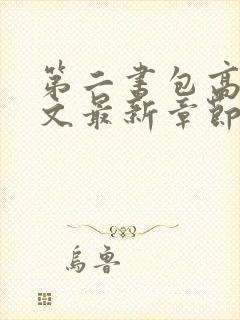 第二书包高
文最新章节
乌鲁